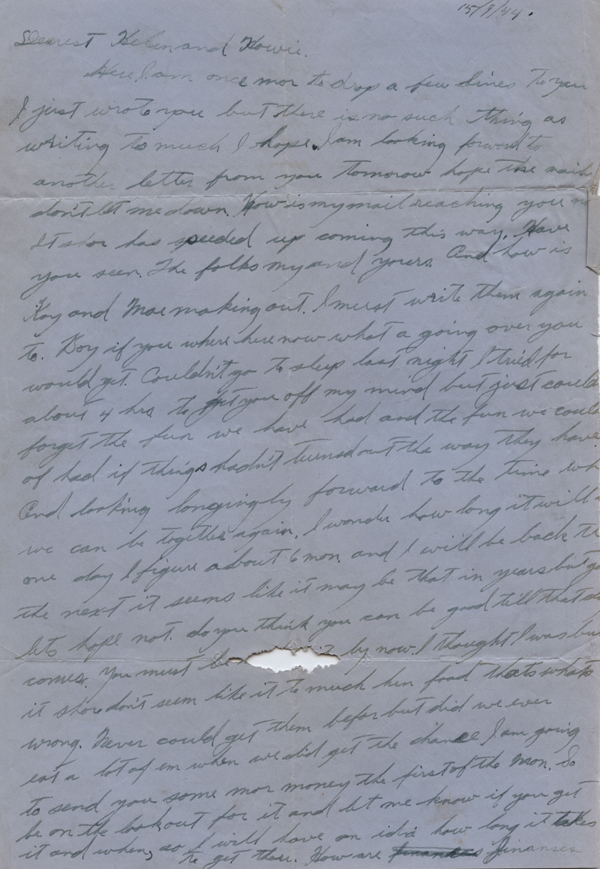 15/9/44.
Dearest Helen and Howie.
Here I am once mor to drop a few lines to you
I just wrote you but there is no such thing as
writing to much I hope. I am looking forward to
another letter from you tomorow hope the mails
don't let me down. How is my mail reaching you
It shor has speeded up coming this way. Have
you seen. The folks my and yours. And how is
Kay and Mae making out. I must write them again
to. Boy if you where here now what a going over you
would get. Couldn't go to sleep last night I tried for
about 4 hrs to get you off my mind but just could
forget the fun we have had and the fun we could
of had if things hadn't turned out the way they have
And looking longingly forward to the time
we can be together again. I wonder how long it will
one day I figure about 6 mon. and I will be back
the next it seems like it may be that in years but
lets hope not. do you think you can be good till that
comes. You must be by now. I thought I was
it shor don't seem like it to much hen food thats whats
wrong. Never could get them befor but did we ever
eat a lot of em when we did get the chance I am going
to send you some mor money the first of the mon. So
be on the lookout for it and let me know if you get
it and when, so I will have an idia how long it takes
to get there. How are finanses